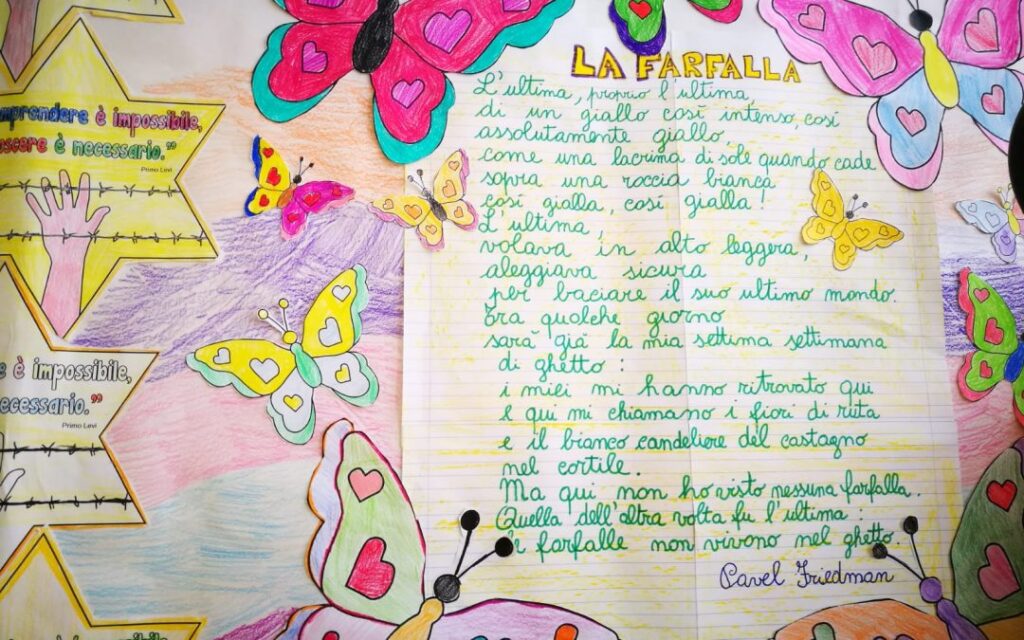 LA FARFALLA
L'ultima, proprio l'ultima,
di un giallo così intenso, così
assolutamente giallo,
come una lacrima di sole quando cade
sopra una roccia bianca
così gialla, così gialla!
L'ultima,
volava in alto leggera,
aleggiava sicura
per baciare il suo ultimo mondo.
Tra qualche giorno
sarà già la mia settima settimana
di ghetto:
i miei mi hanno ritrovato qui
e qui mi chiamano i fiori di ruta
e il bianco candeliere del castagno
nel cortile.
Ma qui non ho visto nessuna farfalla.
Quella dell'altra volta fu l'ultima:
le farfalle non vivono nel ghetto.
Pavel Friedman
mprendere è impossibile,
oscere è necessario."
Primo Levi
e è impossibile,
necessario."
Primo Levi